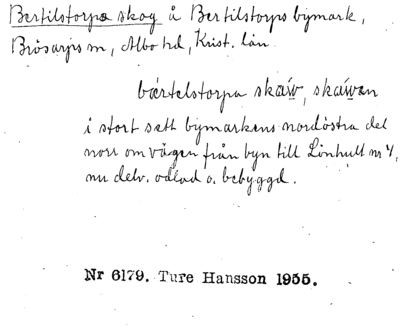 Bertilstorps skog å Bertilstorps bymark,
Brösarps sn, Albo hd, Krist. län
bærtelstorpa skaw̲, skaw̲an
i stort sett bymarkens nordöstra del
norr om vägen från byn till Lönhult nr 4,
nu delv. odlad o. bebyggd.
Nr 6179. Ture Hansson 1955.